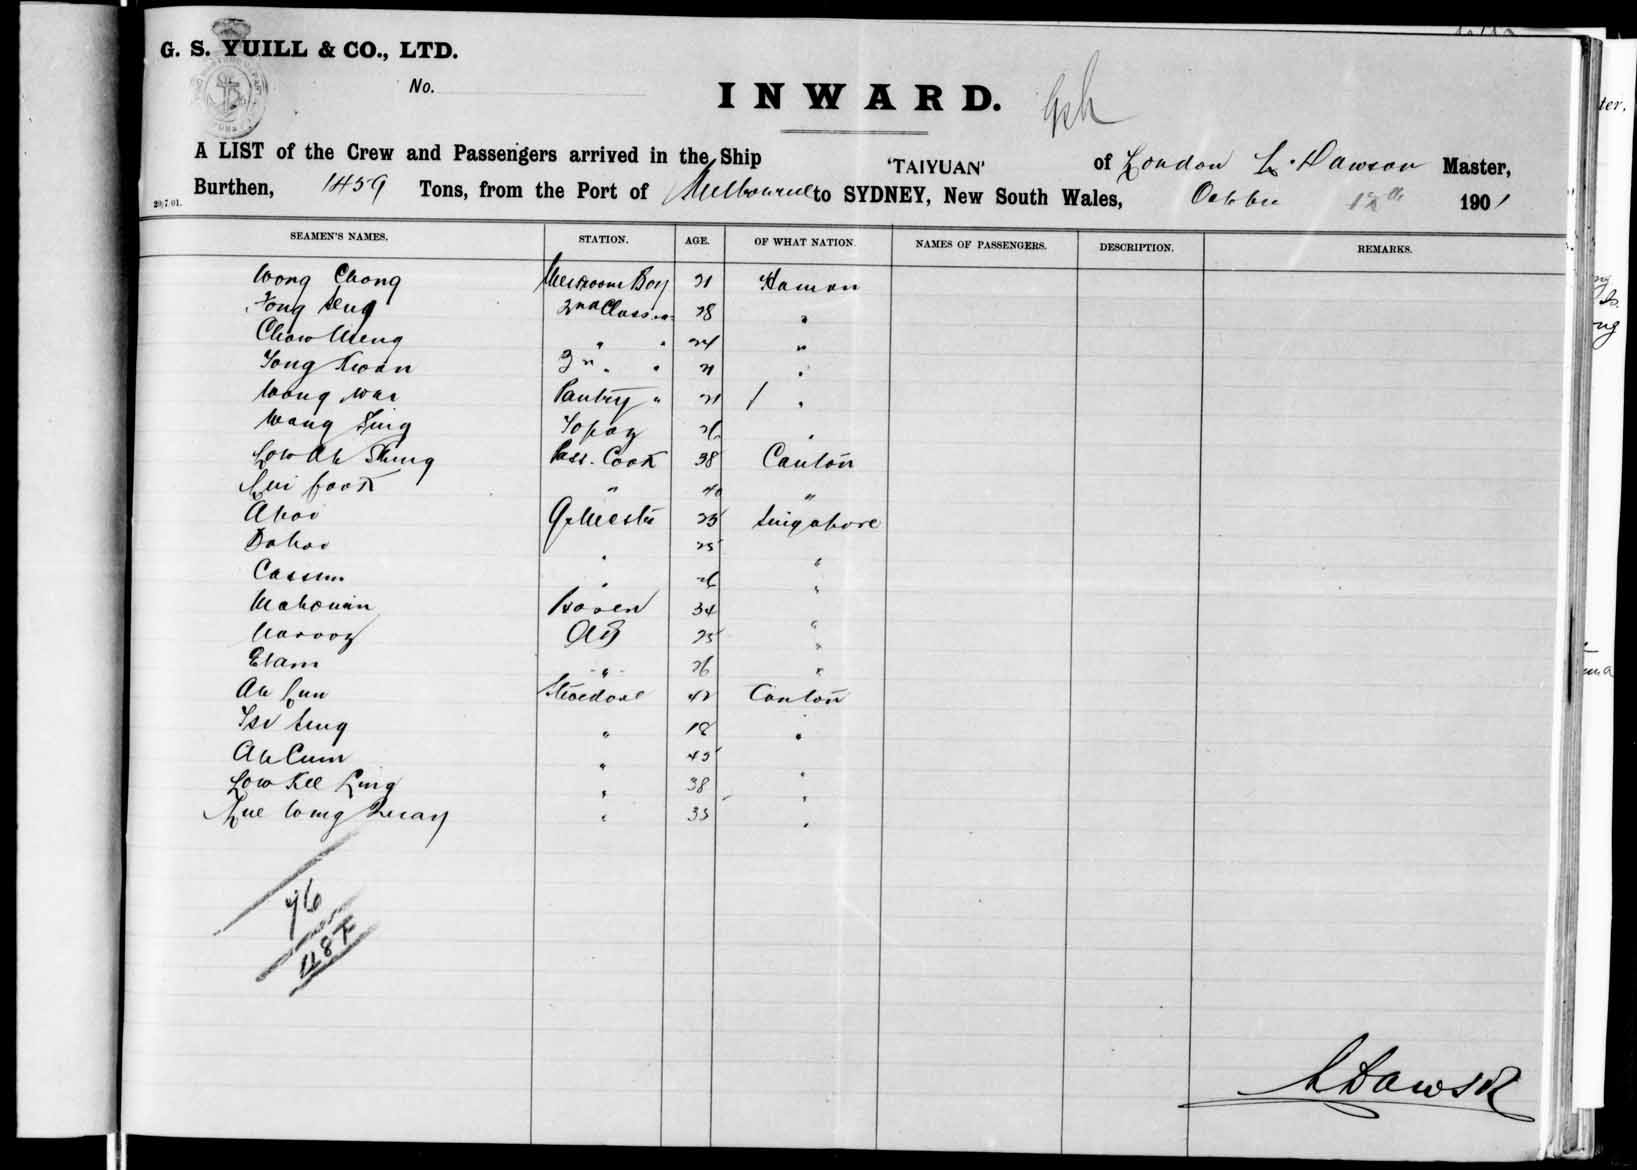 G. S. YUILL & CO., LTD.
No.
INWARD.
A LIST of the Crew and Passengers arrived in the Ship 'TAIYUAN' of London L. Dawson Master,
Burthen, 1459 Tons, from the Port of Melbourne to SYDNEY, New South Wales, October 1901
20/7/01.
SEAMEN'S NAMES. STATION. AGE. OF WHAT NATION. NAMES OF PASSENGERS. DESCRIPTION. REMARKS.
Wong Chong Messroom Boy 21
Fong Seng 2nd Class " 28 "
Chow Meng " " 24 "
Tong Kwan " " 21 "
Wong Wah Pantry " 21 "
Wong Sing Topaz 26 "
Low Ah Shung Pass. Cook 38 Canton
Lui Fook " 40 "
Ahoi Qr Master 25 Singapore
" 25 "
Cassim " 26 "
34 "
AB 25 "
Elam " 26 "
Ah Fun Stevedore 42 Canton
" 18 "
Ah Cum " 45 "
Low Kee Ling " 38 "
" 35 "
76
118 F
L Dawson